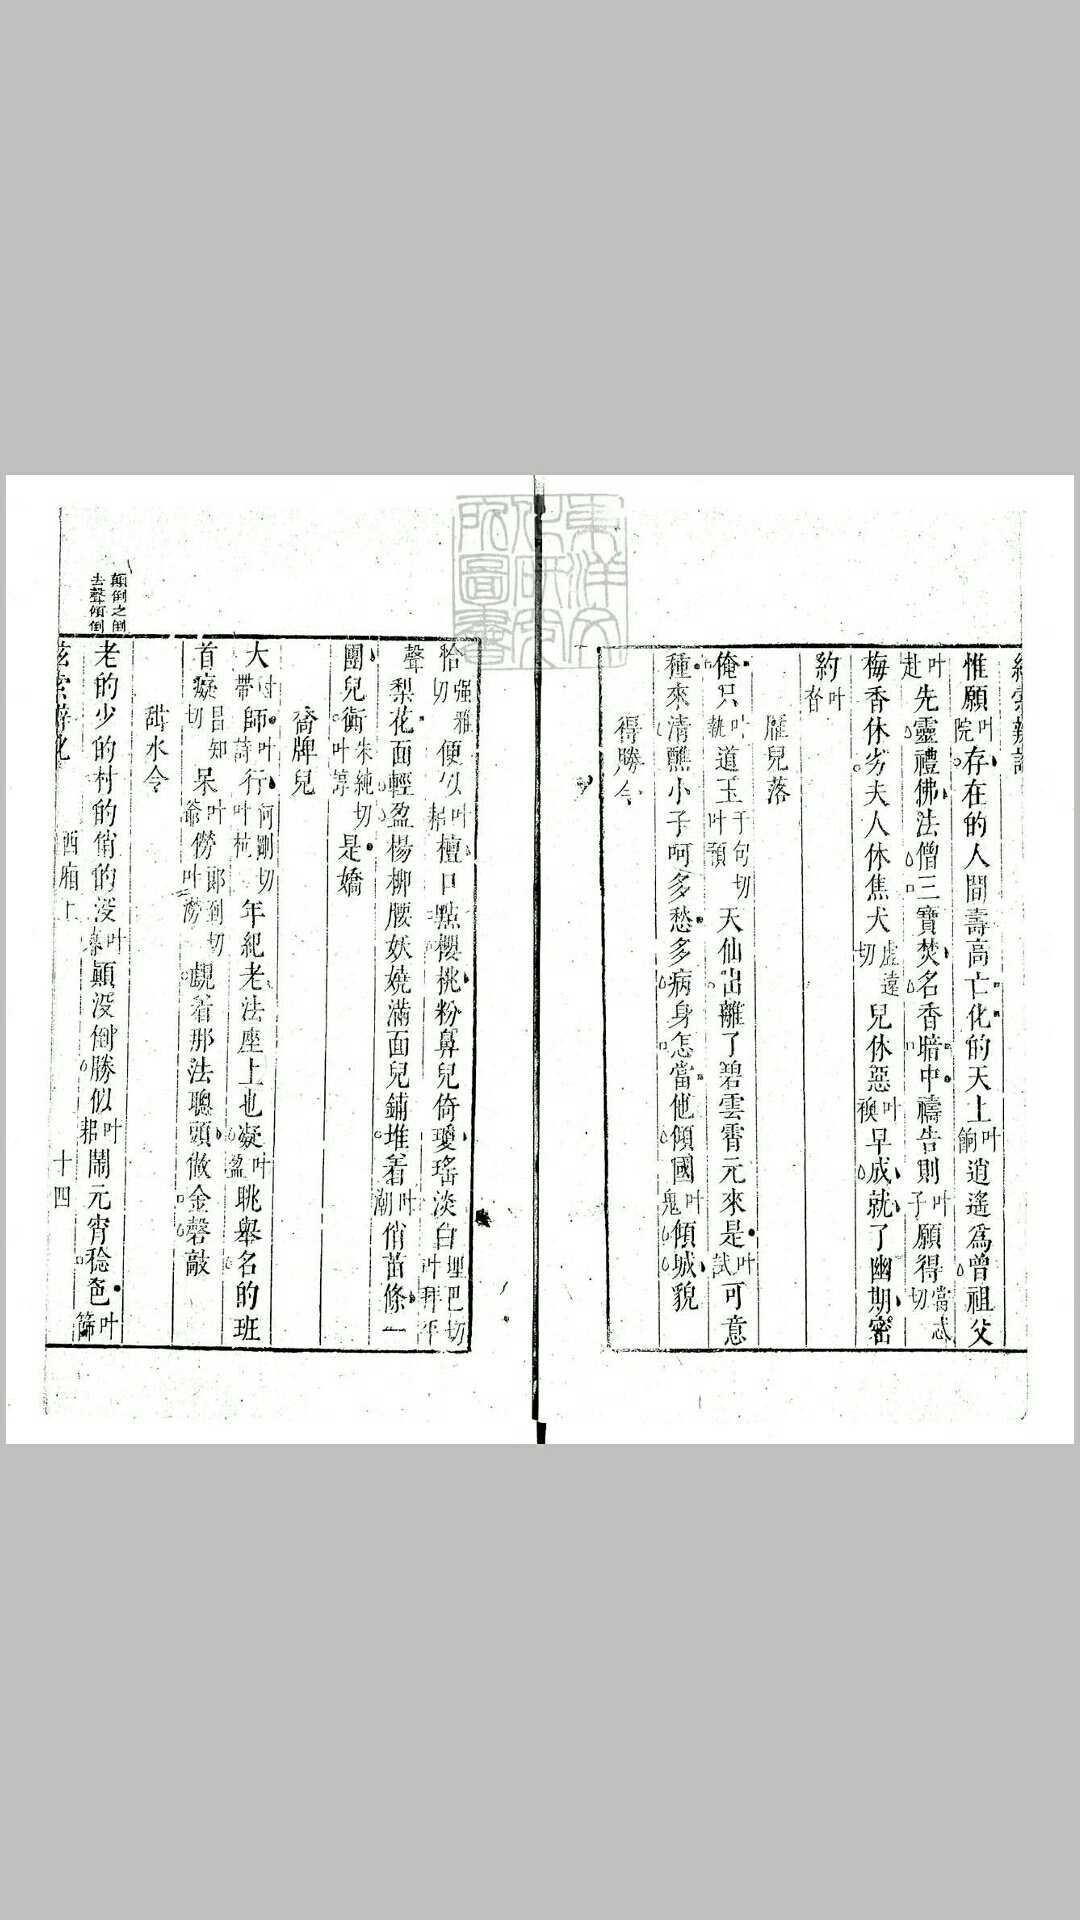 惟願叶院存在的人間壽高亡化的天上叶餉逍遙爲曾祖父
叶赴先靈禮佛法僧三寶焚名香暗中禱告則叶子願得當忒切
梅香休劣夫人休焦犬虛遠切兒休惡叶襖早成就了幽期密
約叶杳
鴈兒落
俺只叶執道玉于句切叶預天仙出離了碧雲霄元來是叶試可意
種來清醮小子呵多愁多病身怎當他傾國叶鬼傾城貌
得勝令
恰强雅切便似叶耜檀口點櫻桃粉鼻兒倚瓊瑤淡白埋巴切叶拜平
聲梨花面輕盈楊柳腰妖嬈滿面兒鋪堆着叶潮俏苗條一
團兒衠朱純切叶諄是嬌
喬牌兒
大叶帶師叶詩行何剛切叶杭年紀老法座上也凝叶盈眺舉名的班
首癡昌知切呆叶爺僗郞到切叶澇覷着那法聰頭做金磬敲
甜水令
老的少的村的俏的沒叶顚沒倒勝似叶耜鬧元宵稔色叶篩
顚倒之倒
去聲傾倒
西廂上
十四
東洋文化研究所圖書